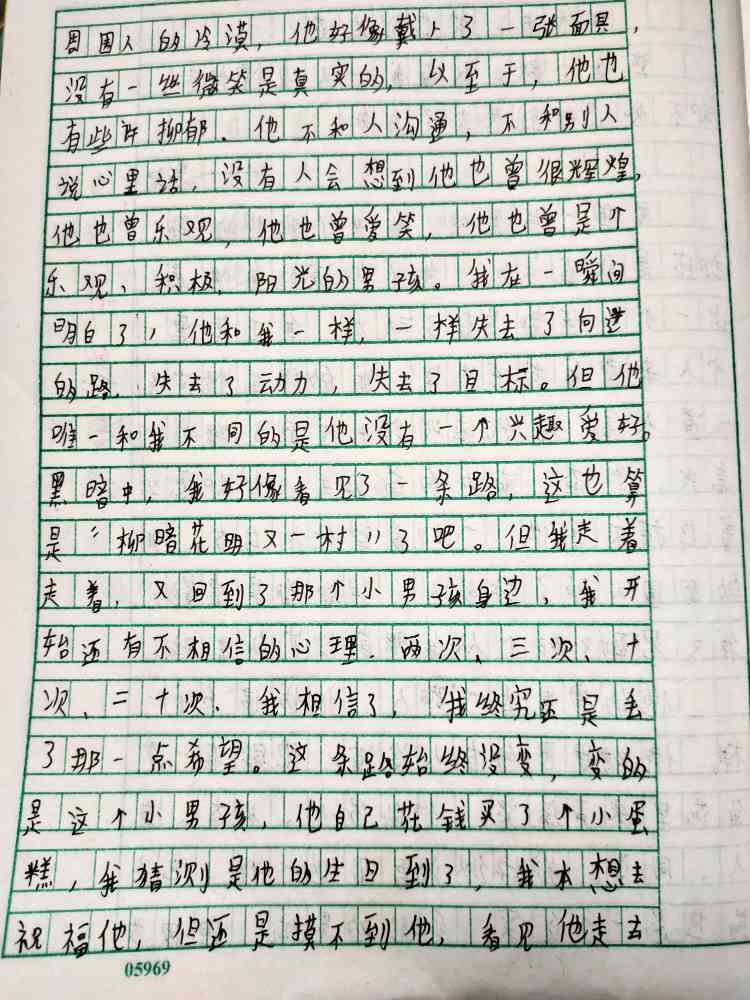 周围人的冷漠，他好像戴上了一张面具，
没有一丝微笑是真实的，以至于，他也
有些许抑郁．他不和人沟通，不和别人
说心里话，没有人会想到他也曾很辉煌，
他也曾乐观，他也曾爱笑，他也曾是个
乐观、积极、阳光的男孩。我在一瞬间
明白了，他和我一样，一样失去了向
的路．失去了动力，失去了目标。但他
唯一和我不同的是他没有一个兴趣爱好。
黑暗中，我好像看见了一条路，这也算
是“柳暗花明又一村”了吧。但我走着
走着，又回到了那个小男孩身边，我开
始还有不相信的心理．两次、三次、十
次、二十次．我相信了，我终究还是丢
了那一点希望。这条路始终没变，变的
是这个小男孩，他自己花钱买了个小蛋
糕，我猜测是他的生日到了，我本想去
祝福他，但还是摸不到他，看见他走去
05969